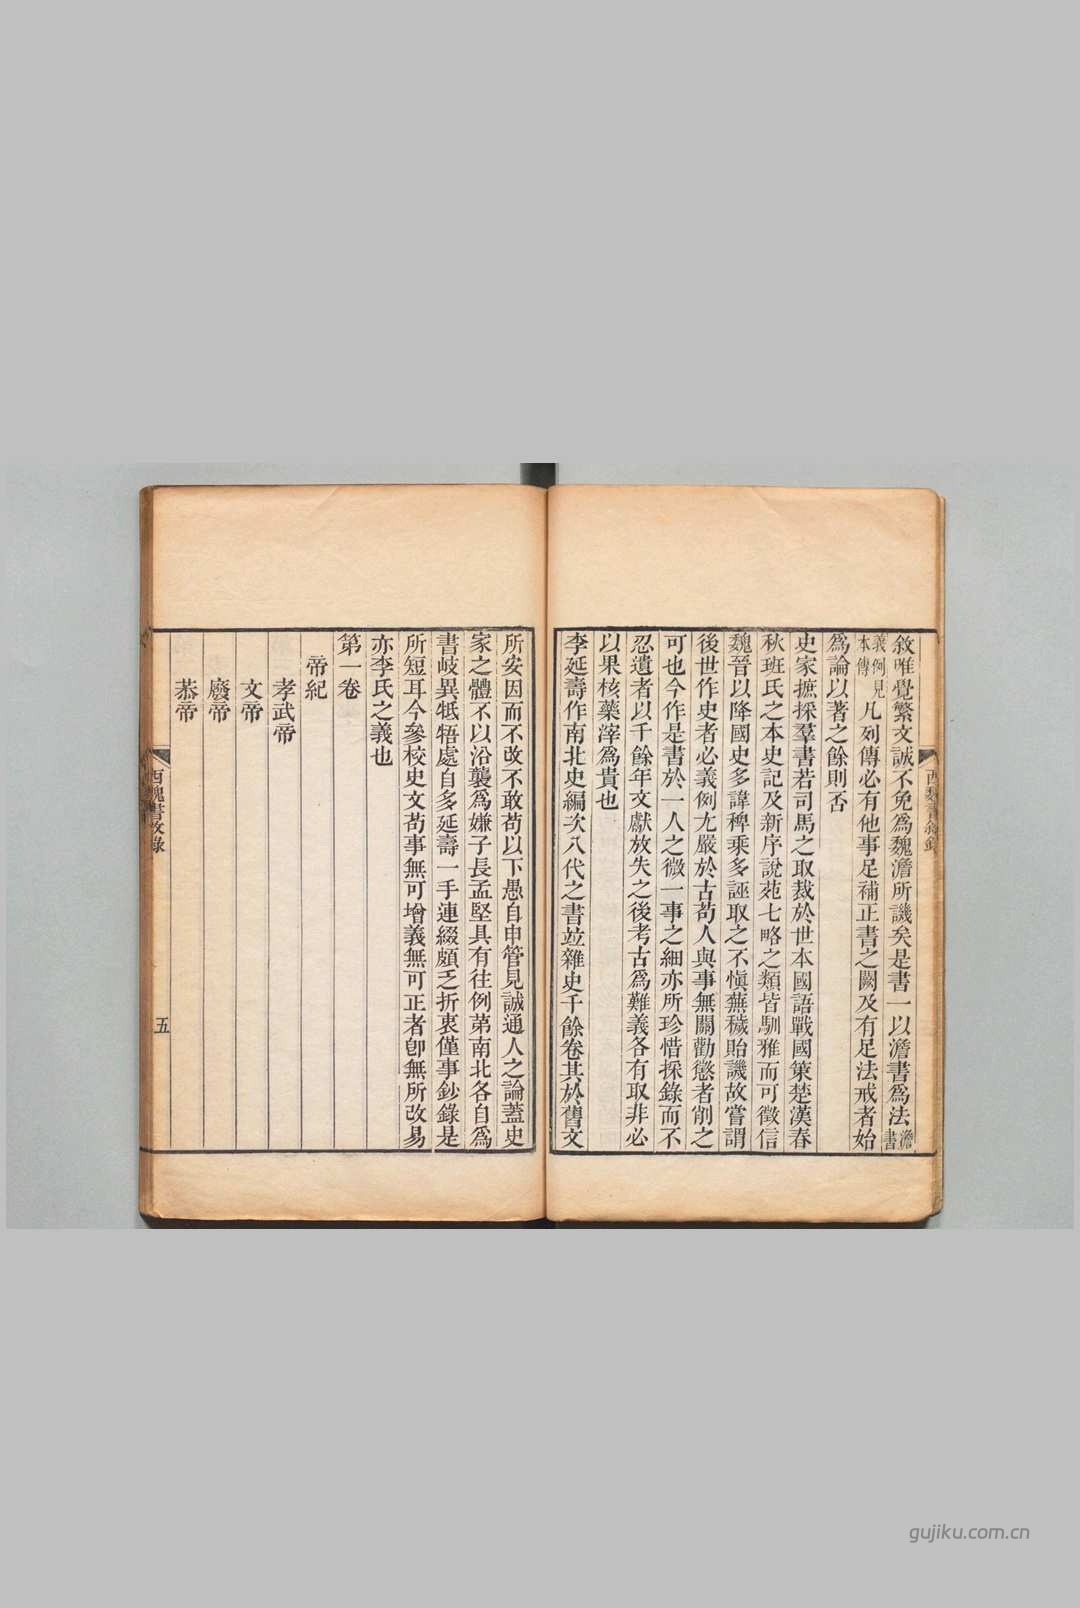 敘唯覺繁文誠不免爲魏澹所譏矣是書一以澹書爲法澹書
義例見本傳凡列傳必有他事足補正書之闕及有足法戒者始
爲論以著之餘則否
史家摭採羣書若司馬之取裁於世本國語戰國策楚漢春
秋班氏之本史記及新序說苑七略之類皆馴雅而可徵信
魏晉以降國史多諱稗乘多誣取之不愼蕪穢貽譏故嘗謂
後世作史者必義例尤嚴於古苟人與事無關勸懲者削之
可也今作是書於一人之微一事之細亦所珍惜採錄而不
忍遺者以千餘年文獻放失之後考古爲難義各有取非必
以果核藥滓爲貴也
李延壽作南北史編次八代之書竝雜史千餘卷其於舊文
所安因而不改不敢苟以下愚自申管見誠通人之論蓋史
家之體不以沿襲爲嫌子長孟堅具有往例苐南北各自爲
書岐異牴牾處自多延壽一手連綴頗乏折衷僅事鈔錄是
所短耳今參校史文苟事無可增義無可正者卽無所改易
亦李氏之義也
第一卷
帝紀
孝武帝
文帝
廢帝
恭帝
西魏書敘錄
五
gujiku.com.cn